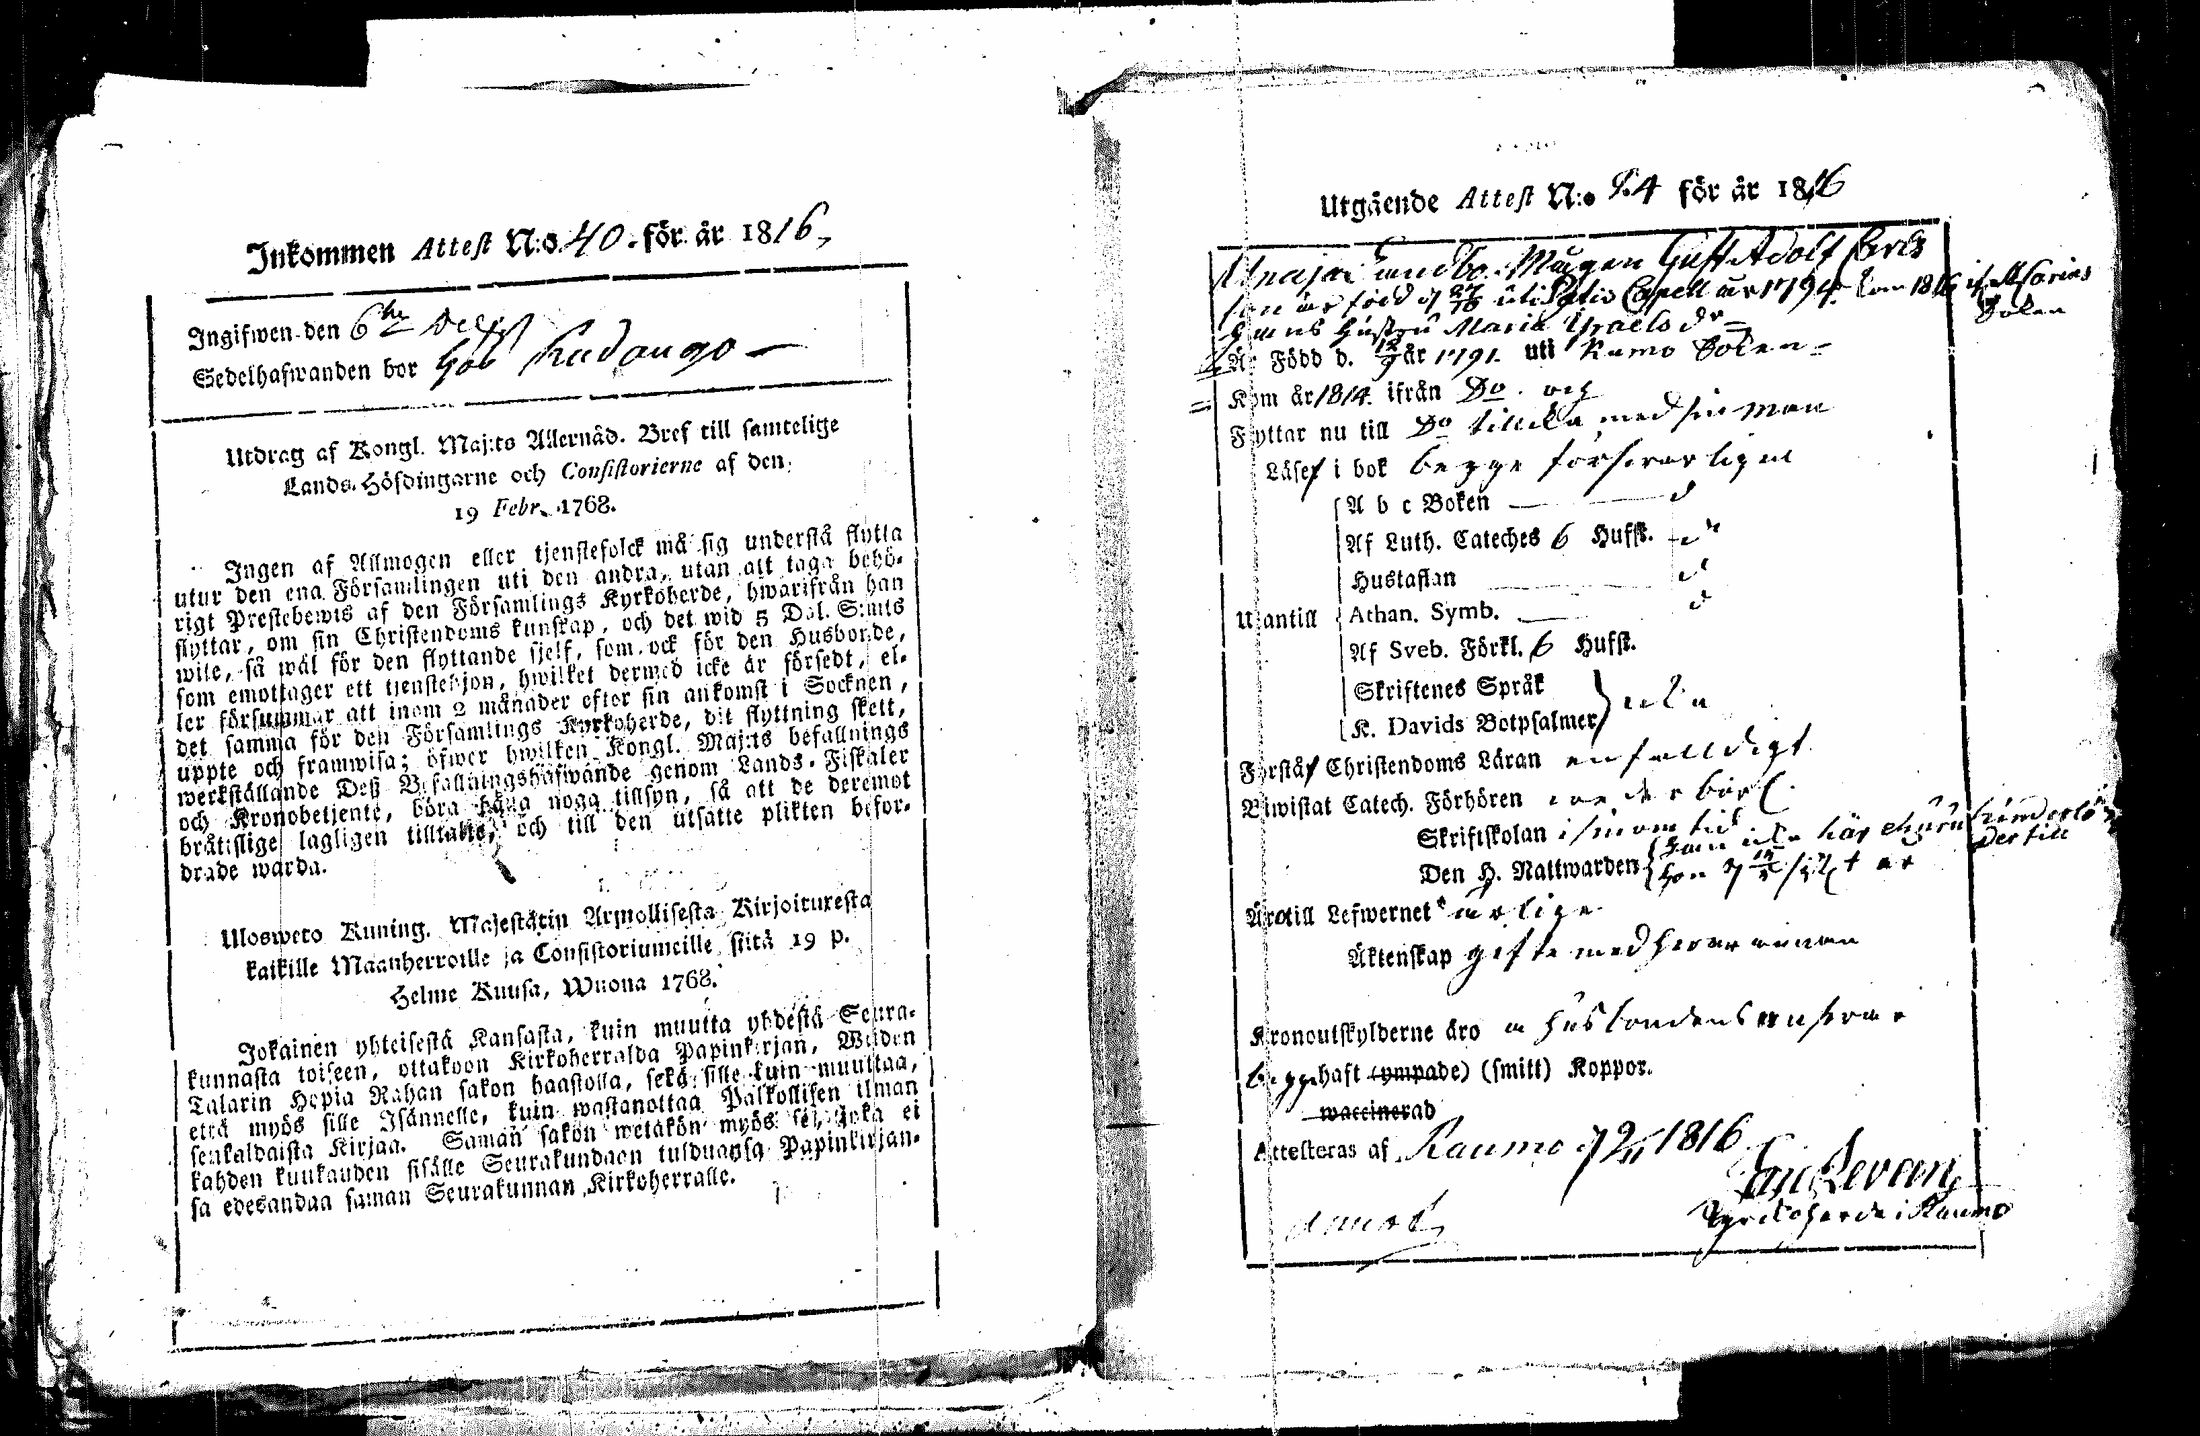 Inkommen Attest N:o 40. för år 1816,
Ingifwen den 6te
Sedelhafwanden bor hos
Utdrag af Kongl. Maj:ts Allernåd. Bref till samtelige
Lands-Höfdingarne och Consistorierne af den
19 Febr. 1768.
Ingen af Allmogen eller tjenstefolck må sig understå flytta
utur den ena Församlingen uti den andra, utan att taga behö-
rigt Prestebewis af den Församlings Kyrkoherde, hwarifrån han
flyttar, om sin Christendoms kunskap, och det wid 5 Dal. S:mts
wite, så wäl för den flyttande sjelf, som ock för den Husbonde,
som emottager ett tjenstehjon, hwilket dermed icke är försedt, el-
ler försummar att inom 2 månader efter sin ankomst i Socknen,
det samma för den Församlings Kyrkoherde, dit flyttning skett,
uppte och framwisa; öfwer hwilken Kongl. Maj:ts befallnings
werkställande Deß Befallningshafwande genom Lands-Fiskaler
och Kronobetjente, böra hålla noga tillsyn, så att de deremot
bråtislige lagligen tilltalte, och till den utsatte plikten befor-
drade warda.
Ulosweto Kuning. Majestätin Armollisesta Kirjoituxesta
kaikille Maanherroille ja Consistoriumeille siitä 19 p.
Helme Kuusa, Wuona 1768.
Jokainen yhteisestä Kansasta, kuin muutta yhdestä Seura-
kunnasta toiseen, ottakoon Kirkoherralda Papinkirjan, Wijden
Talarin Hopia Rahan sakon haastolla, sekä sille kuin muuttaa,
että myös sille Isännelle, kuin wastanottaa Palkollisen ilman
senkaldaista Kirjaa. Saman sakon wetäkön myös se, joka ei
kahden kuukauden sisälle Seurakundaan tulduansa Papinkirjan-
sa edesandaa saman Seurakunnan Kirkoherralle.
Utgående Attest N:o 94 för år 1816
Gust Adolf Carls
son är född d 27/10 uti Capell år 1794. kom 1816 ifr
Socken
Hans Hustru Maria Israels dr
Är Född d. 12/9 år 1791. uti Raumo Socken
Kom år 1814. ifrån Do. och
Flyttar nu till Do tillika med sin man
Läser i bok begge försvarligen
A b c Boken d
Af Luth. Cateches 6 Hufst. do
Hustaflan d
Utantill Athan. Symb. d
Af Sveb. Förkl. 6 Hufst.
Skriftenes Språk
K. Davids Botpsalmer icke
Förstår Christendoms Läran enfalldigt
Biwistat Catech. Förhören
Skriftskolan i sinom tid
Den H. Nattwarden
dertill
Äro till Lefwernet ärlige
Äktenskap gifte med hvarannan
Kronoutskylderne äro å husbondens ansvar
begge haft (ympade) (smitt) Koppor.
waccinerad
Attesteras af Raumo d 9/11 1816
Kyrkoherde i Raumo